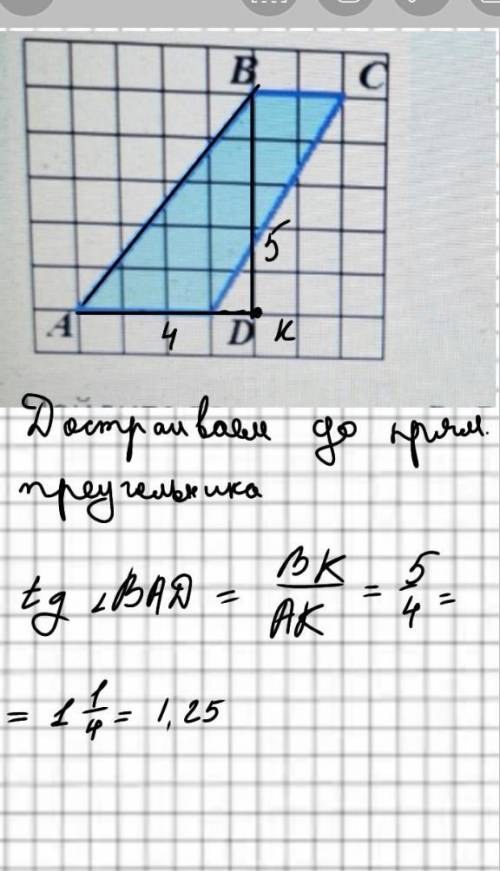 B C
5
A 4 D K
Достраиваем до прям.
треугольника
tg ∠BAD = BK/AK = 5/4 =
= 1 1/4 = 1,25